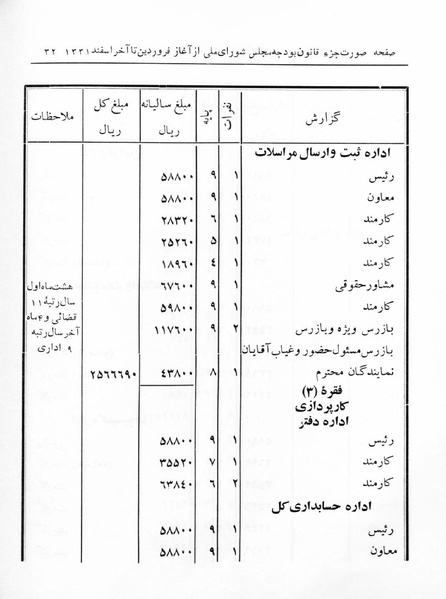 صفحه صورت جزء قانون بودجه مجلس شورای ملی از آغاز فروردین تا آخر اسفند ۱۳۳۱ ۳۲
گزارش نفرات پایه مبلغ سالیانه ریال مبلغ کل ریال ملاحظات
اداره ثبت و ارسال مراسلات
رئیس ۱ ۹ ۵۸۸۰۰
معاون ۱ ۹ ۵۸۸۰۰
کارمند ۱ ۶ ۲۸۳۲۰
کارمند ۱ ۵ ۲۵۲۶۰
کارمند ۱ ۴ ۱۸۹۶۰
مشاور حقوقی ۱ ۹ ۶۷۶۰۰ هشت ماه اول
کارمند ۱ ۹ ۵۹۸۰۰ سال رتبهٔ ۱۱
قضائی و ۴ ماه
بازرس ویژه و بازرس ۲ ۹ ۱۱۷۶۰۰ آخر سال رتبه
بازرس مسئول حضور و غیاب آقایان ۹ اداری
نمایندگان محترم ۱ ۸ ۴۳۸۰۰ ۲۵۶۶۶۹۰
فقرهٔ (۳)
کارپردازی
اداره دفتر
رئیس ۱ ۹ ۵۸۸۰۰
کارمند ۱ ۷ ۳۵۵۲۰
کارمند ۲ ۶ ۶۳۸۴۰
اداره حسابداری کل
رئیس ۱ ۹ ۵۸۸۰۰
معاون ۱ ۹ ۵۸۸۰۰